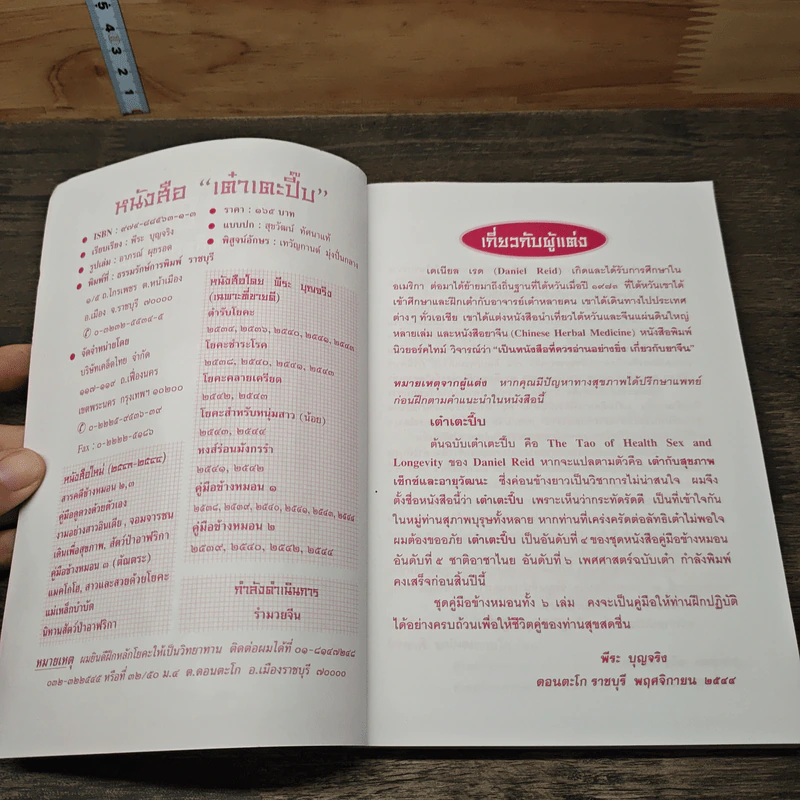 5
4
3
2
1
หนังสือ "เต๋าเตะปี๊บ"
ISBN : ๙๗๔-๘๘๕๖๓-๑-๓
เรียบเรียง : พีระ บุญจริง
รูปเล่ม : อาภรณ์ ผุยรอด
พิมพ์ที่ : ธรรมรักษ์การพิมพ์ ราชบุรี
๑/๕ ถ.ไกรเพชร ต.หน้าเมือง
อ.เมือง จ.ราชบุรี ๗๐๐๐๐
✆ ๐-๓๒๓๒-๕๕๓๔-๕
จัดจำหน่ายโดย
บริษัทเคล็ดไทย จำกัด
๑๑๗-๑๑๙ ถ.เฟื่องนคร
เขตพระนคร กรุงเทพฯ ๑๐๒๐๐
✆ ๐-๒๒๒๕-๙๕๓๖-๓๙
Fax : ๐-๒๒๒๒-๕๑๘๖
ราคา : ๑๖๕ บาท
แบบปก : สุขวัฒน์ ทัศนาแท้
พิสูจน์อักษร : เทวัญกานต์ มุ่งปั่นกลาง
หนังสือโดย พีระ บุญจริง
(เฉพาะที่ขายดี)
ตำรับโยคะ
๒๕๓๔, ๒๕๓๖, ๒๕๔๐, ๒๕๔๑, ๒๕๔๓
โยคะชำระโรค
๒๕๓๘, ๒๕๔๐, ๒๕๔๑, ๒๕๔๓
โยคะคลายเครียด
๒๕๔๒, ๒๕๔๓
โยคะสำหรับหนุ่มสาว (น้อย)
๒๕๔๓, ๒๕๔๔
หงส์ร่อนมังกรรำ
๒๕๔๑, ๒๕๔๒
คู่มือข้างหมอน ๑
๒๕๓๘, ๒๕๓๙, ๒๕๔๐, ๒๕๔๑, ๒๕๔๓, ๒๕๔๔
คู่มือข้างหมอน ๒
๒๕๓๙, ๒๕๔๐, ๒๕๔๒, ๒๕๔๔
หนังสือใหม่ (๒๕๔๓-๒๕๔๔)
สารคดีข้างหมอน ๒, ๓
คู่มือดูดวงด้วยตัวเอง
งามอย่างสาวอินเดีย, จอมจารชน
เดินเพื่อสุขภาพ, สัตว์ป่าอาฟริกา
คู่มือข้างหมอน ๓ (ตัณตระ)
แมคโกโฮ, สาวและสวยด้วยโยคะ
แม่เหล็กบำบัด
นิทานสัตว์ป่าอาฟริกา
กำลังดำเนินการ
รำมวยจีน
หมายเหตุ ผมยินดีฝึกหลักโยคะให้เป็นวิทยาทาน ติดต่อผมได้ที่ ๐๑-๘๑๔๗๒๔๘
๐๓๒-๓๒๒๕๔๕ หรือที่ ๓๒/๕๐ ม.๔ ต.ดอนตะโก อ.เมืองราชบุรี ๗๐๐๐๐
เกี่ยวกับผู้แต่ง
เดเนียล เรด (Daniel Reid) เกิดและได้รับการศึกษาใน
อเมริกา ต่อมาได้ย้ายมาถึงถิ่นฐานที่ไต้หวันเมื่อปี ๑๙๗๓ ที่ไต้หวันเขาได้
เข้าศึกษาและฝึกเต๋ากับอาจารย์เต๋าหลายคน เขาได้เดินทางไปประเทศ
ต่าง ๆ ทั่วเอเชีย เขาได้แต่งหนังสือนำเที่ยวไต้หวันและจีนแผ่นดินใหญ่
หลายเล่ม และหนังสือยาจีน (Chinese Herbal Medicine) หนังสือพิมพ์
นิวยอร์คไทม์ วิจารณ์ว่า "เป็นหนังสือที่ควรอ่านอย่างยิ่ง เกี่ยวกับยาจีน"
หมายเหตุจากผู้แต่ง หากคุณมีปัญหาทางสุขภาพได้ปรึกษาแพทย์
ก่อนฝึกตามคำแนะนำในหนังสือนี้
เต๋าเตะปี๊บ
ต้นฉบับเต๋าเตะปี๊บ คือ The Tao of Health Sex and
Longevity ของ Daniel Reid หากจะแปลตามตัวคือ เต๋ากับสุขภาพ
เซ็กซ์และอายุวัฒนะ ซึ่งค่อนข้างยาวเป็นวิชาการไม่น่าสนใจ ผมจึง
ตั้งชื่อหนังสือนี้ว่า เต๋าเตะปี๊บ เพราะเห็นว่ากระทัดรัดดี เป็นที่เข้าใจกัน
ในหมู่ท่านสุภาพบุรุษทั้งหลาย หากท่านที่เคร่งครัดต่อลัทธิเต๋าไม่พอใจ
ผมต้องขออภัย เต๋าเตะปี๊บ เป็นอันดับที่ ๔ ของชุดหนังสือคู่มือข้างหมอน
อันดับที่ ๕ ชาติอาชาไนย อันดับที่ ๖ เพศศาสตร์ฉบับเต๋า กำลังพิมพ์
คงเสร็จก่อนสิ้นปีนี้
ชุดคู่มือข้างหมอนทั้ง ๖ เล่ม คงจะเป็นคู่มือให้ท่านฝึกปฏิบัติ
ได้อย่างครบถ้วนเพื่อให้ชีวิตคู่ของท่านสุขสดชื่น
พีระ บุญจริง
ดอนตะโก ราชบุรี พฤศจิกายน ๒๕๔๔